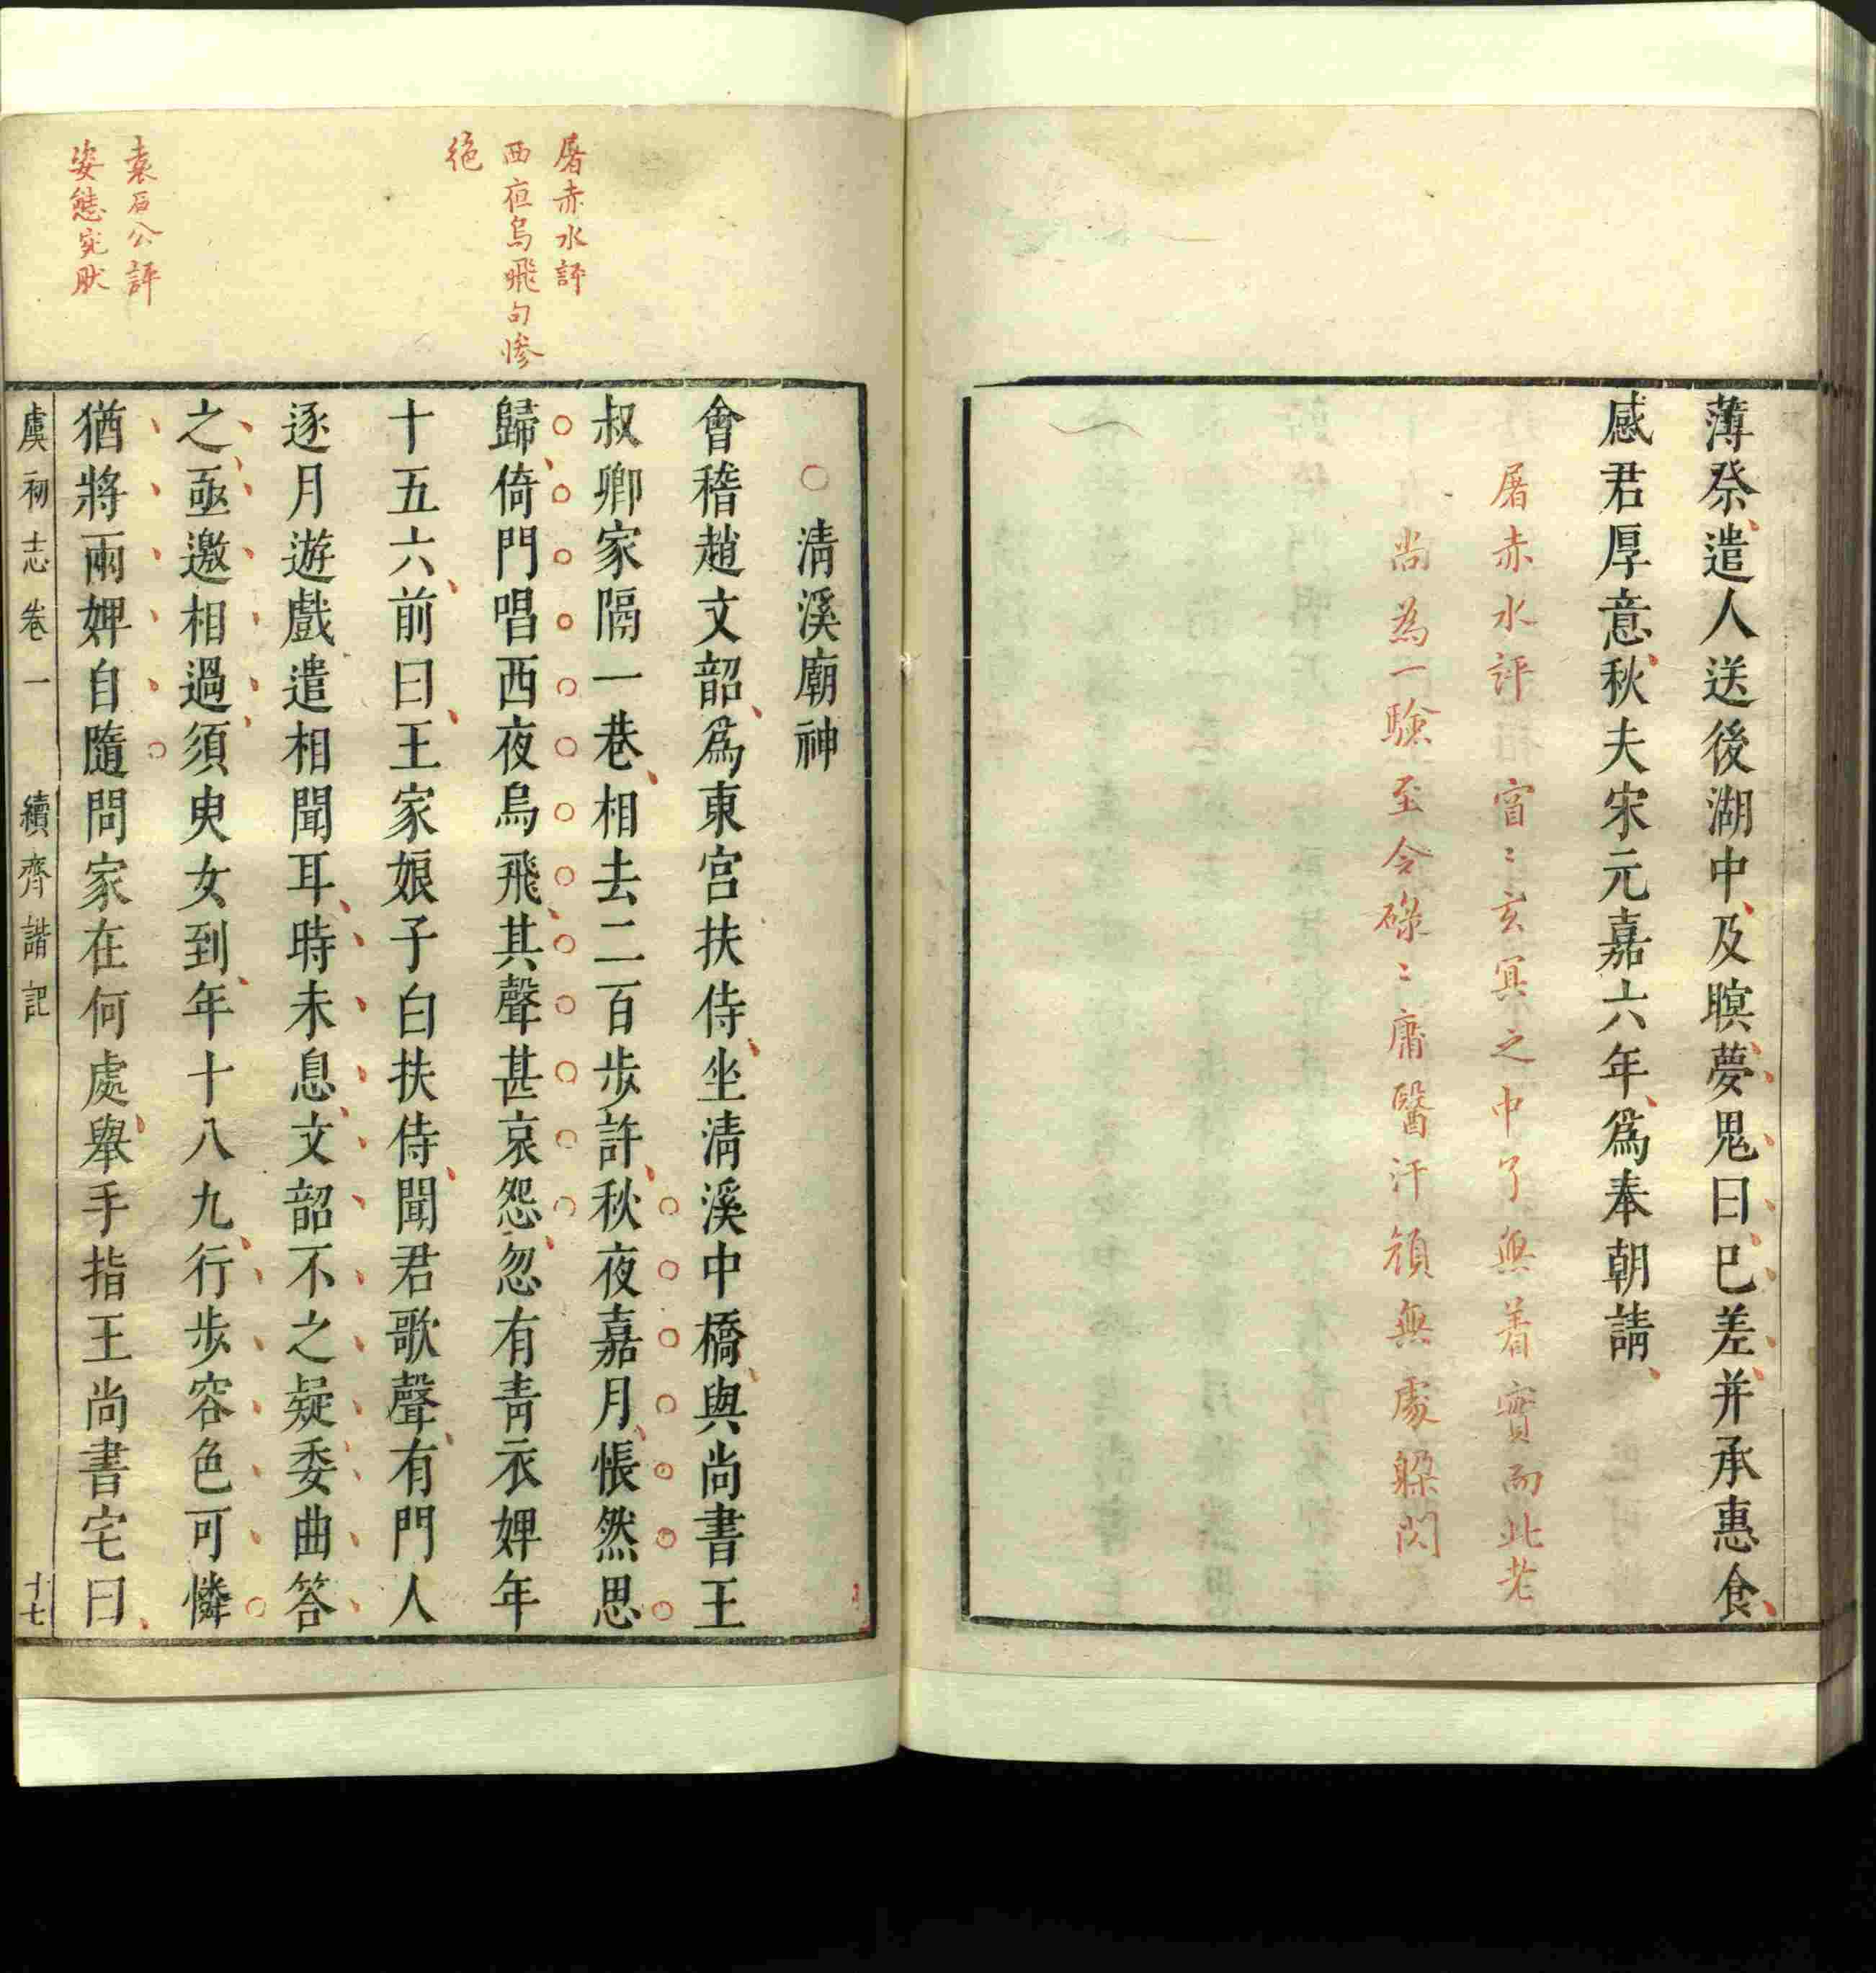 薄祭遣人送後湖中及暝夢鬼曰已差并承惠食
感君厚意秋夫宋元嘉六年爲奉朝請
屠赤水評 窅〻玄冥之中了無着實而此老
尚為一驗至今碌〻庸醫汗顔無處躱閃
屠赤水評
西夜烏飛句慘
絶
袁石公評
姿態宛肰
○清溪廟神
會稽趙文韶爲東宮扶侍坐清溪中橋與尚書王
叔卿家隔一巷相去二百步許秋夜嘉月悵然思
歸倚門唱西夜烏飛其聲甚哀怨忽有青衣婢年
十五六前曰王家娘子白扶侍聞君歌聲有門人
逐月遊戲遣相聞耳時未息文韶不之疑委曲答
之亟邀相過須臾女到年十八九行步容色可憐
猶將兩婢自隨問家在何處舉手指王尚書宅曰
虞初志卷一 續齊諧記 十七